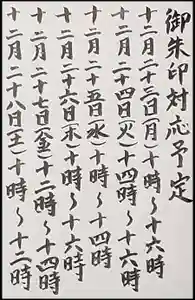 御朱印対応予定
十二月二十三日(月)十時〜十六時
十二月二十四日(火)十四時〜十六時
十二月二十五日(水)十時〜十四時
十二月二十六日(木)十時〜十六時
十二月二十七日(金)十二時〜十四時
十二月二十八日(土)十時〜十二時